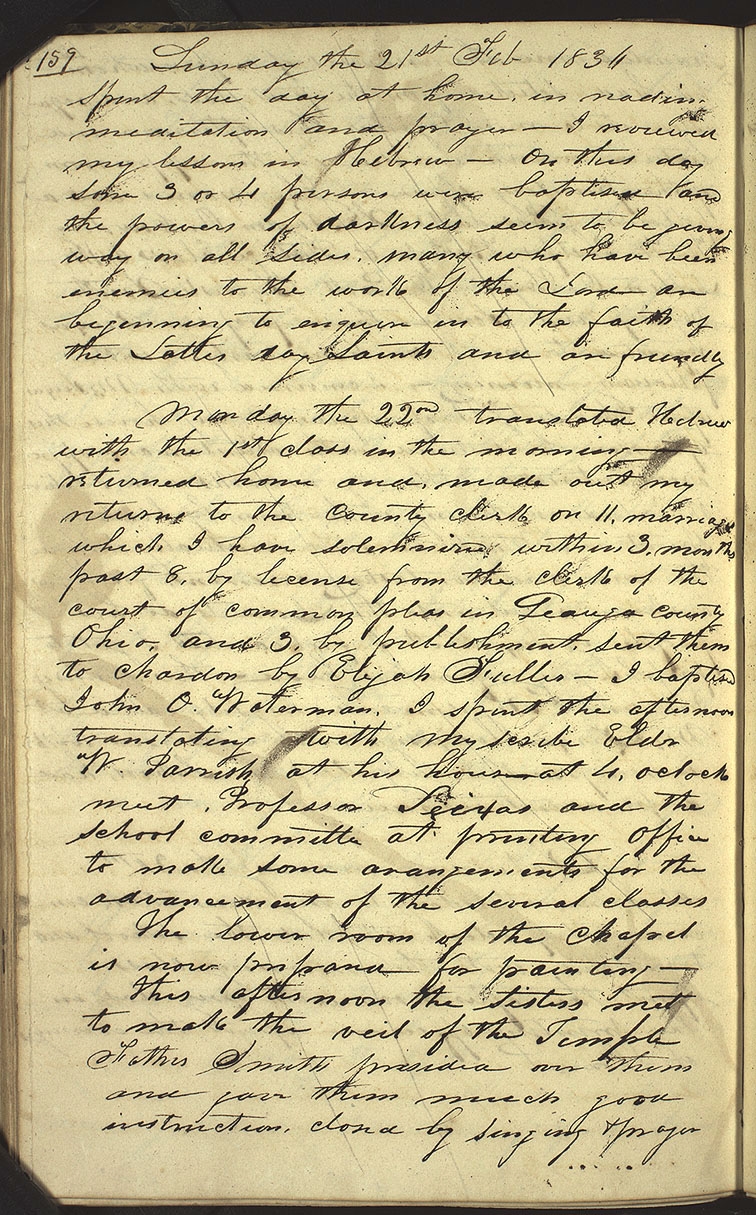 159 Sunday the 21st Feb 1836
spent the day at home, in reading
meditation and prayer — I reviewed
my lessons in Hebrew — On this day
some 3 or 4 persons were baptised and
the powers of darkness seem to be giving
way on all sides. many who have been
enemies to the work of the Lord are
beginning to enquire in to the faith of
the Latter day Saints and are friendly
Monday the 22nd translated Hebrew
with the 1st class in the morning —
returned home and, made out my
returns to the county clerk on 11, marriages
which I have solemnized within 3, months
past 8, by license from the clerk of the
court of common pleas in Geauga county
Ohio, and 3, by publishment, sent them
to chardon by Elijah Fuller — I baptised
John O. Waterman. I spent the afternoon
translating with my scribe Eldr
W. Parrish at his house at 4, oclock
meet, Professor Seixas and the
school committe at printing office
to make some arangements for the
advancement of the several classes
The lower room of the chapel
is now prepared for painting —
This afternoon the sisters met
to make the veil of the Temple
Father Smith presided over them
and gave them much good
instruction, closed by singing & prayer